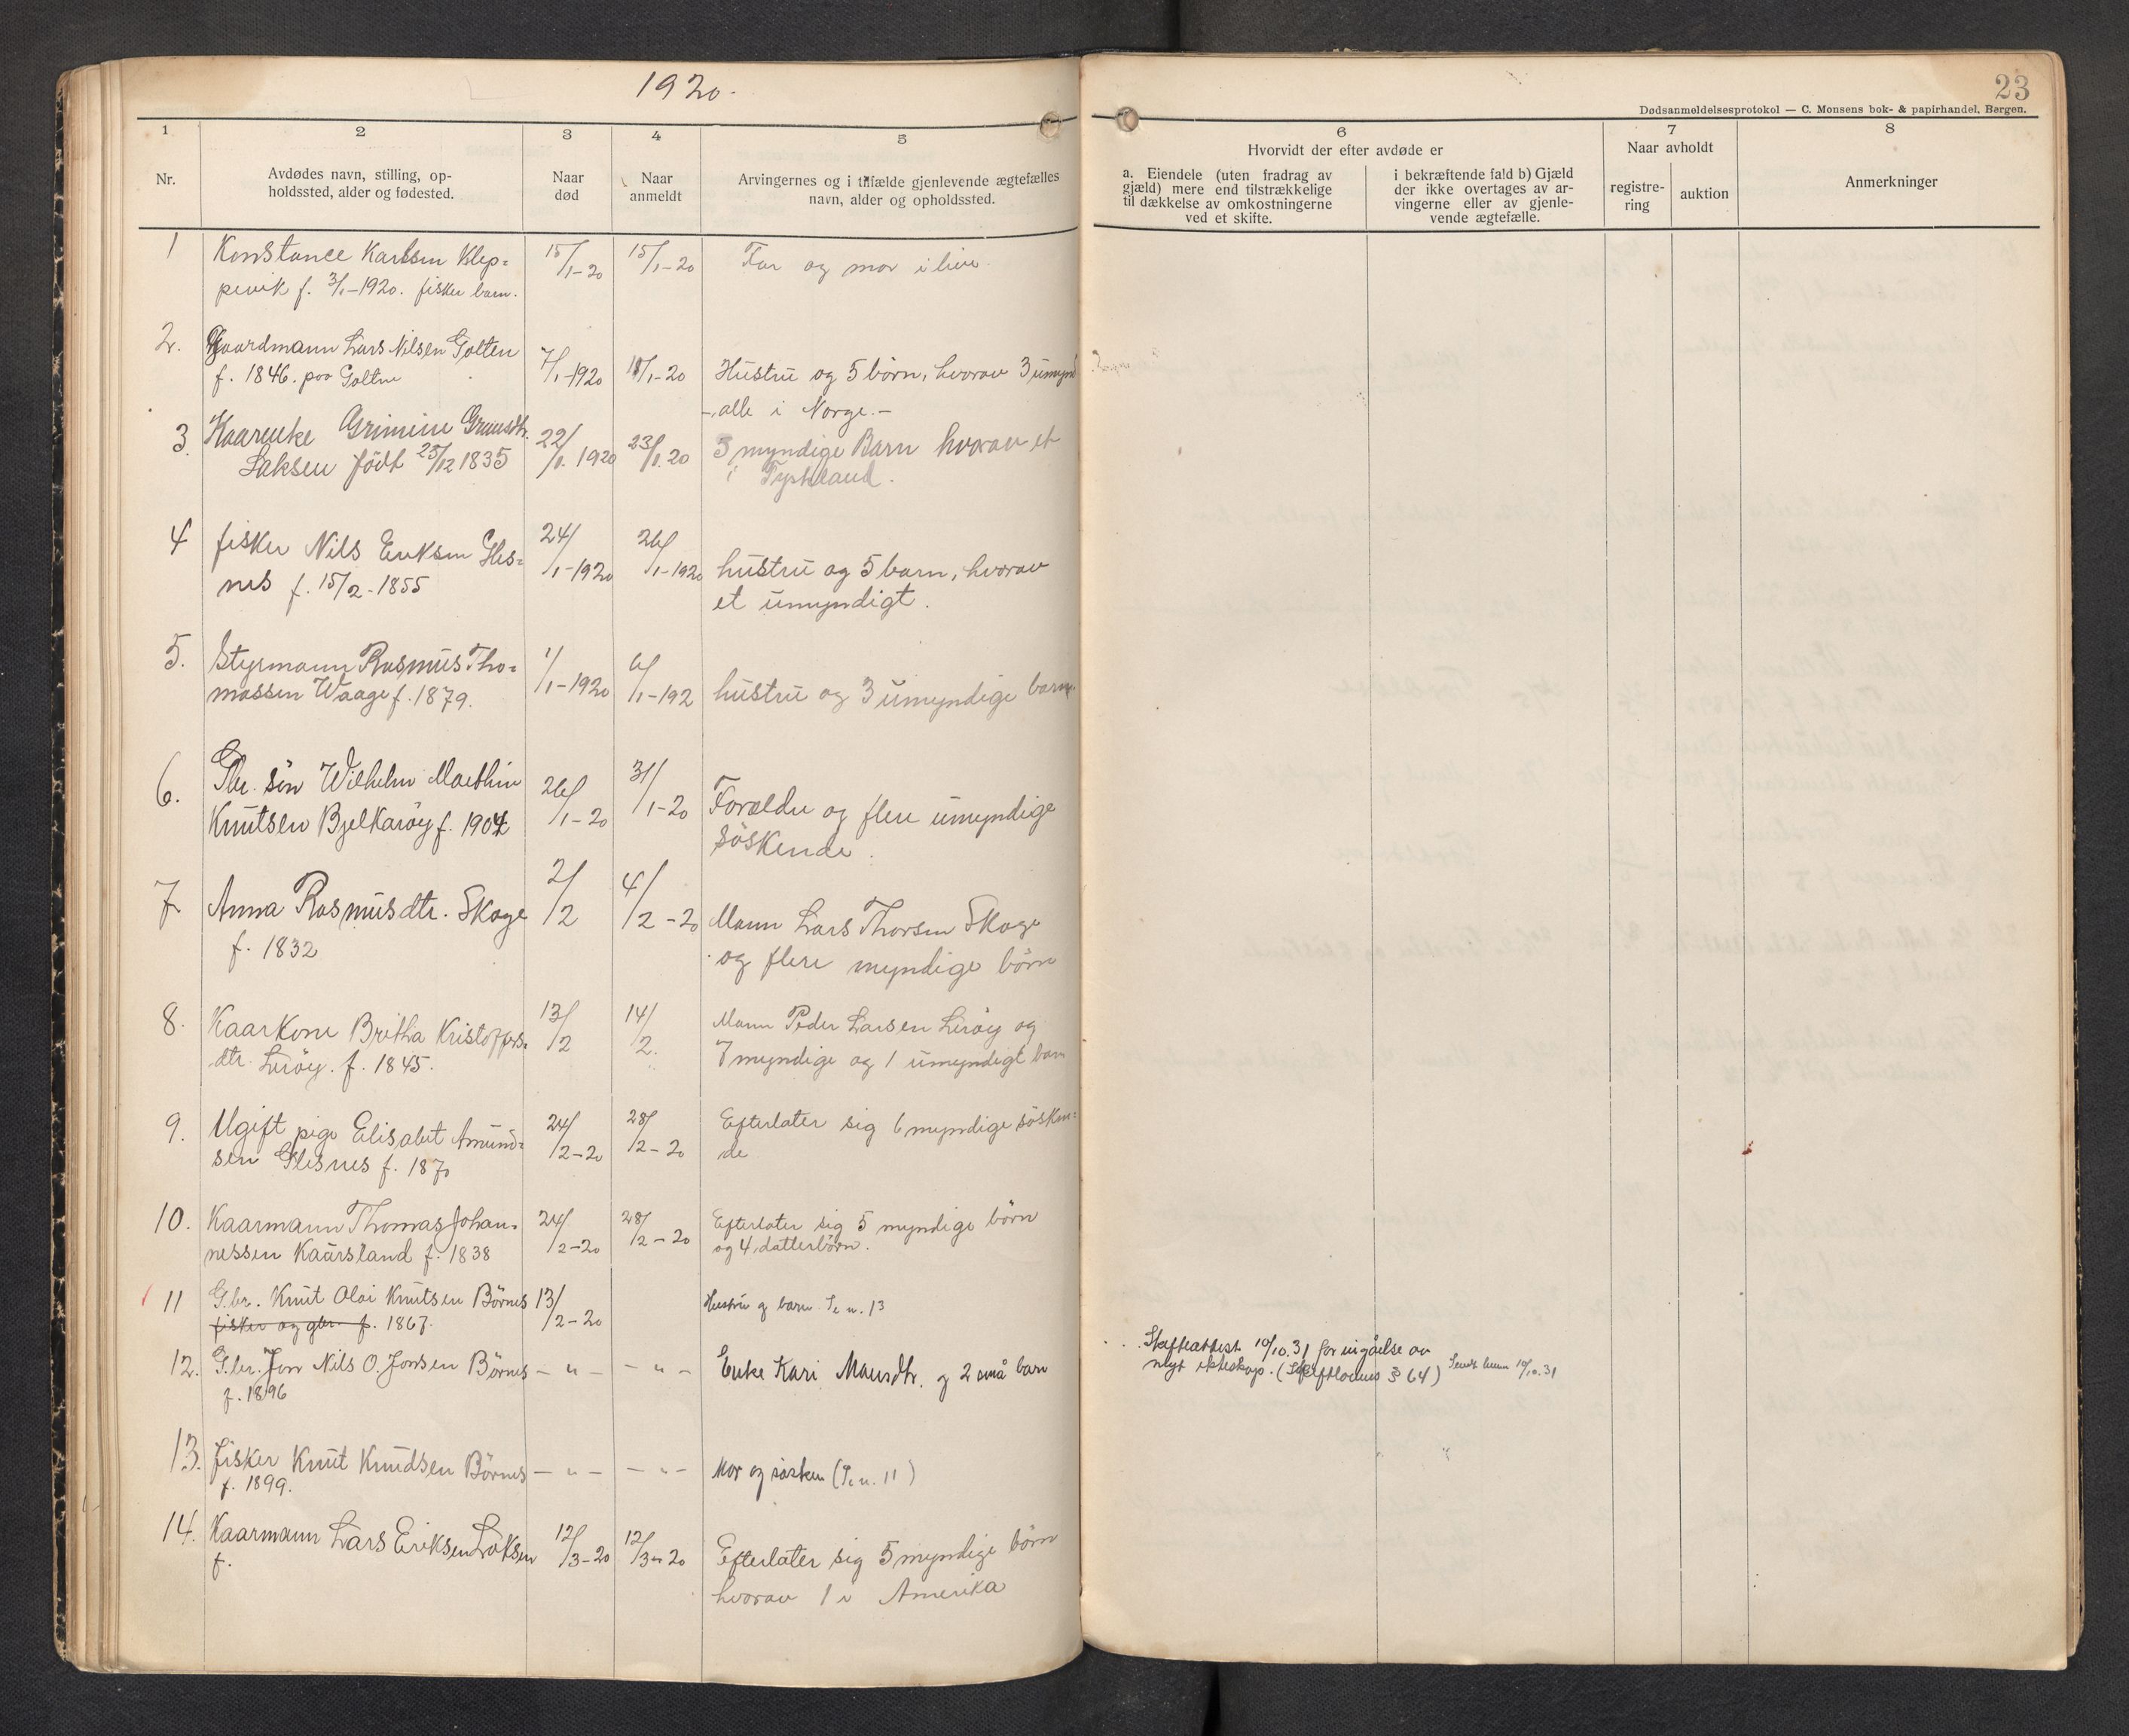 1920.
23
Dødsanmeldelsesprotokol — C. Monsens bok- & papirhandel, Bergen.
1
2
3
4
5
6
7
8
Nr.
Avdødes navn, stilling, op-
holdssted, alder og fødested.
Naar
død
Naar
anmeldt
Arvingernes og i tilfælde gjenlevende ægtefælles
navn, alder og opholdssted.
Hvorvidt der efter avdøde er
a. Eiendele (uten fradrag av
gjæld) mere end tilstrækkelige
til dækkelse av omkostningerne
ved et skifte.
i bekræftende fald b) Gjæld
der ikke overtages av ar-
vingerne eller av gjenle-
vende ægtefælle.
Naar avholdt
registre-
ring
auktion
Anmerkninger
1
Konstance Karlsen Klep=
pevik f. 3/1-1920. fisker barn.
15/1-20
15/1-20
Far og mor i live.
2.
Gaardmann Lars Nilsen Golten
f. 1846. paa Golten
7/1-1920
18/1-20
Hustru og 5 börn, hvorav 3 umynd
-alle i Norge.-
3.
Kaarenke Grimine Grunsdtr.
Laksen födt 25/12 1835
22/1. 1920
23/1. 20
3 myndige Barn hvorav et
i Tyskland.
4
fisker Nils Eriksen Gles=
nes f. 15/2-1855
24/1-1920
26/1-1920
hustru og 5 barn, hvorav
et umyndigt.
5.
Styrmann Rasmus Tho=
massen Waage f. 1879.
1/1-1920
6/1-192
hustru og 3 umyndige barn.
6.
Gbr. sön Wilhelm Marthin
Knutsen Bjelkaröy f. 1904
26/1-20
31/1-20
Forældre og flere umyndige
söskende.
7.
Anna Rasmusdtr. Skoge
f. 1832
2/2
4/2-20
Mann Lars Thorsen Skoge
og flere myndige börn
8.
Kaarkone Britha Kristoffers=
dtr. Liröy. f. 1845.
13/2
14/2.
Mann Peder Larsen Liröy og
7 myndige og 1 umyndigt barn
9.
Ugift pige Elisabet Amund=
sen Glesnes f. 1870
24/2-20
28/2-20
Efterlater sig 6 myndige sösken=
de
10.
Kaarmann Thomas Johan=
nessen Kaursland f. 1838
24/2-20
28/2-20
Efterlater sig 5 myndige börn
og 4 datterbörn.
11
G.br. Knut Olai Knutsen Börnes
fisker og gbr. f. 1867.
13/2-20
Hustru og barn Se n. 13
12.
G.br. Jon Nils O. Jonsen Börnes
f. 1896
- " -
- " -
Enke Kari Monsdtr. og 2 små barn
Skifteattest 10/10.31 for inngåelse av
nytt ekteskap. (Skiftlovens § 64) Sendt henne 10/10.31
13.
fisker Knut Knudsen Börnes
f. 1899.
- " -
- " -
Mor og sösken (Se n. 11)
14.
Kaarmann Lars Eriksen Loksen
f.
12/3-20
12/3-20
Efterlater sig 5 myndige börn
hvorav 1 i Amerika